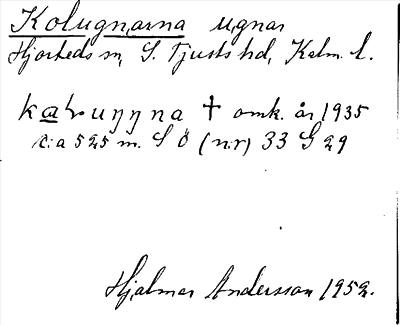 Kolugnarna ugnar
Hjorteds sn, S. Tjusts hd, Kalm. l.
omk. år 1935
c:a 525 m. S Ö (nr) 33 G 29
Hjalmar Andersson 1952.